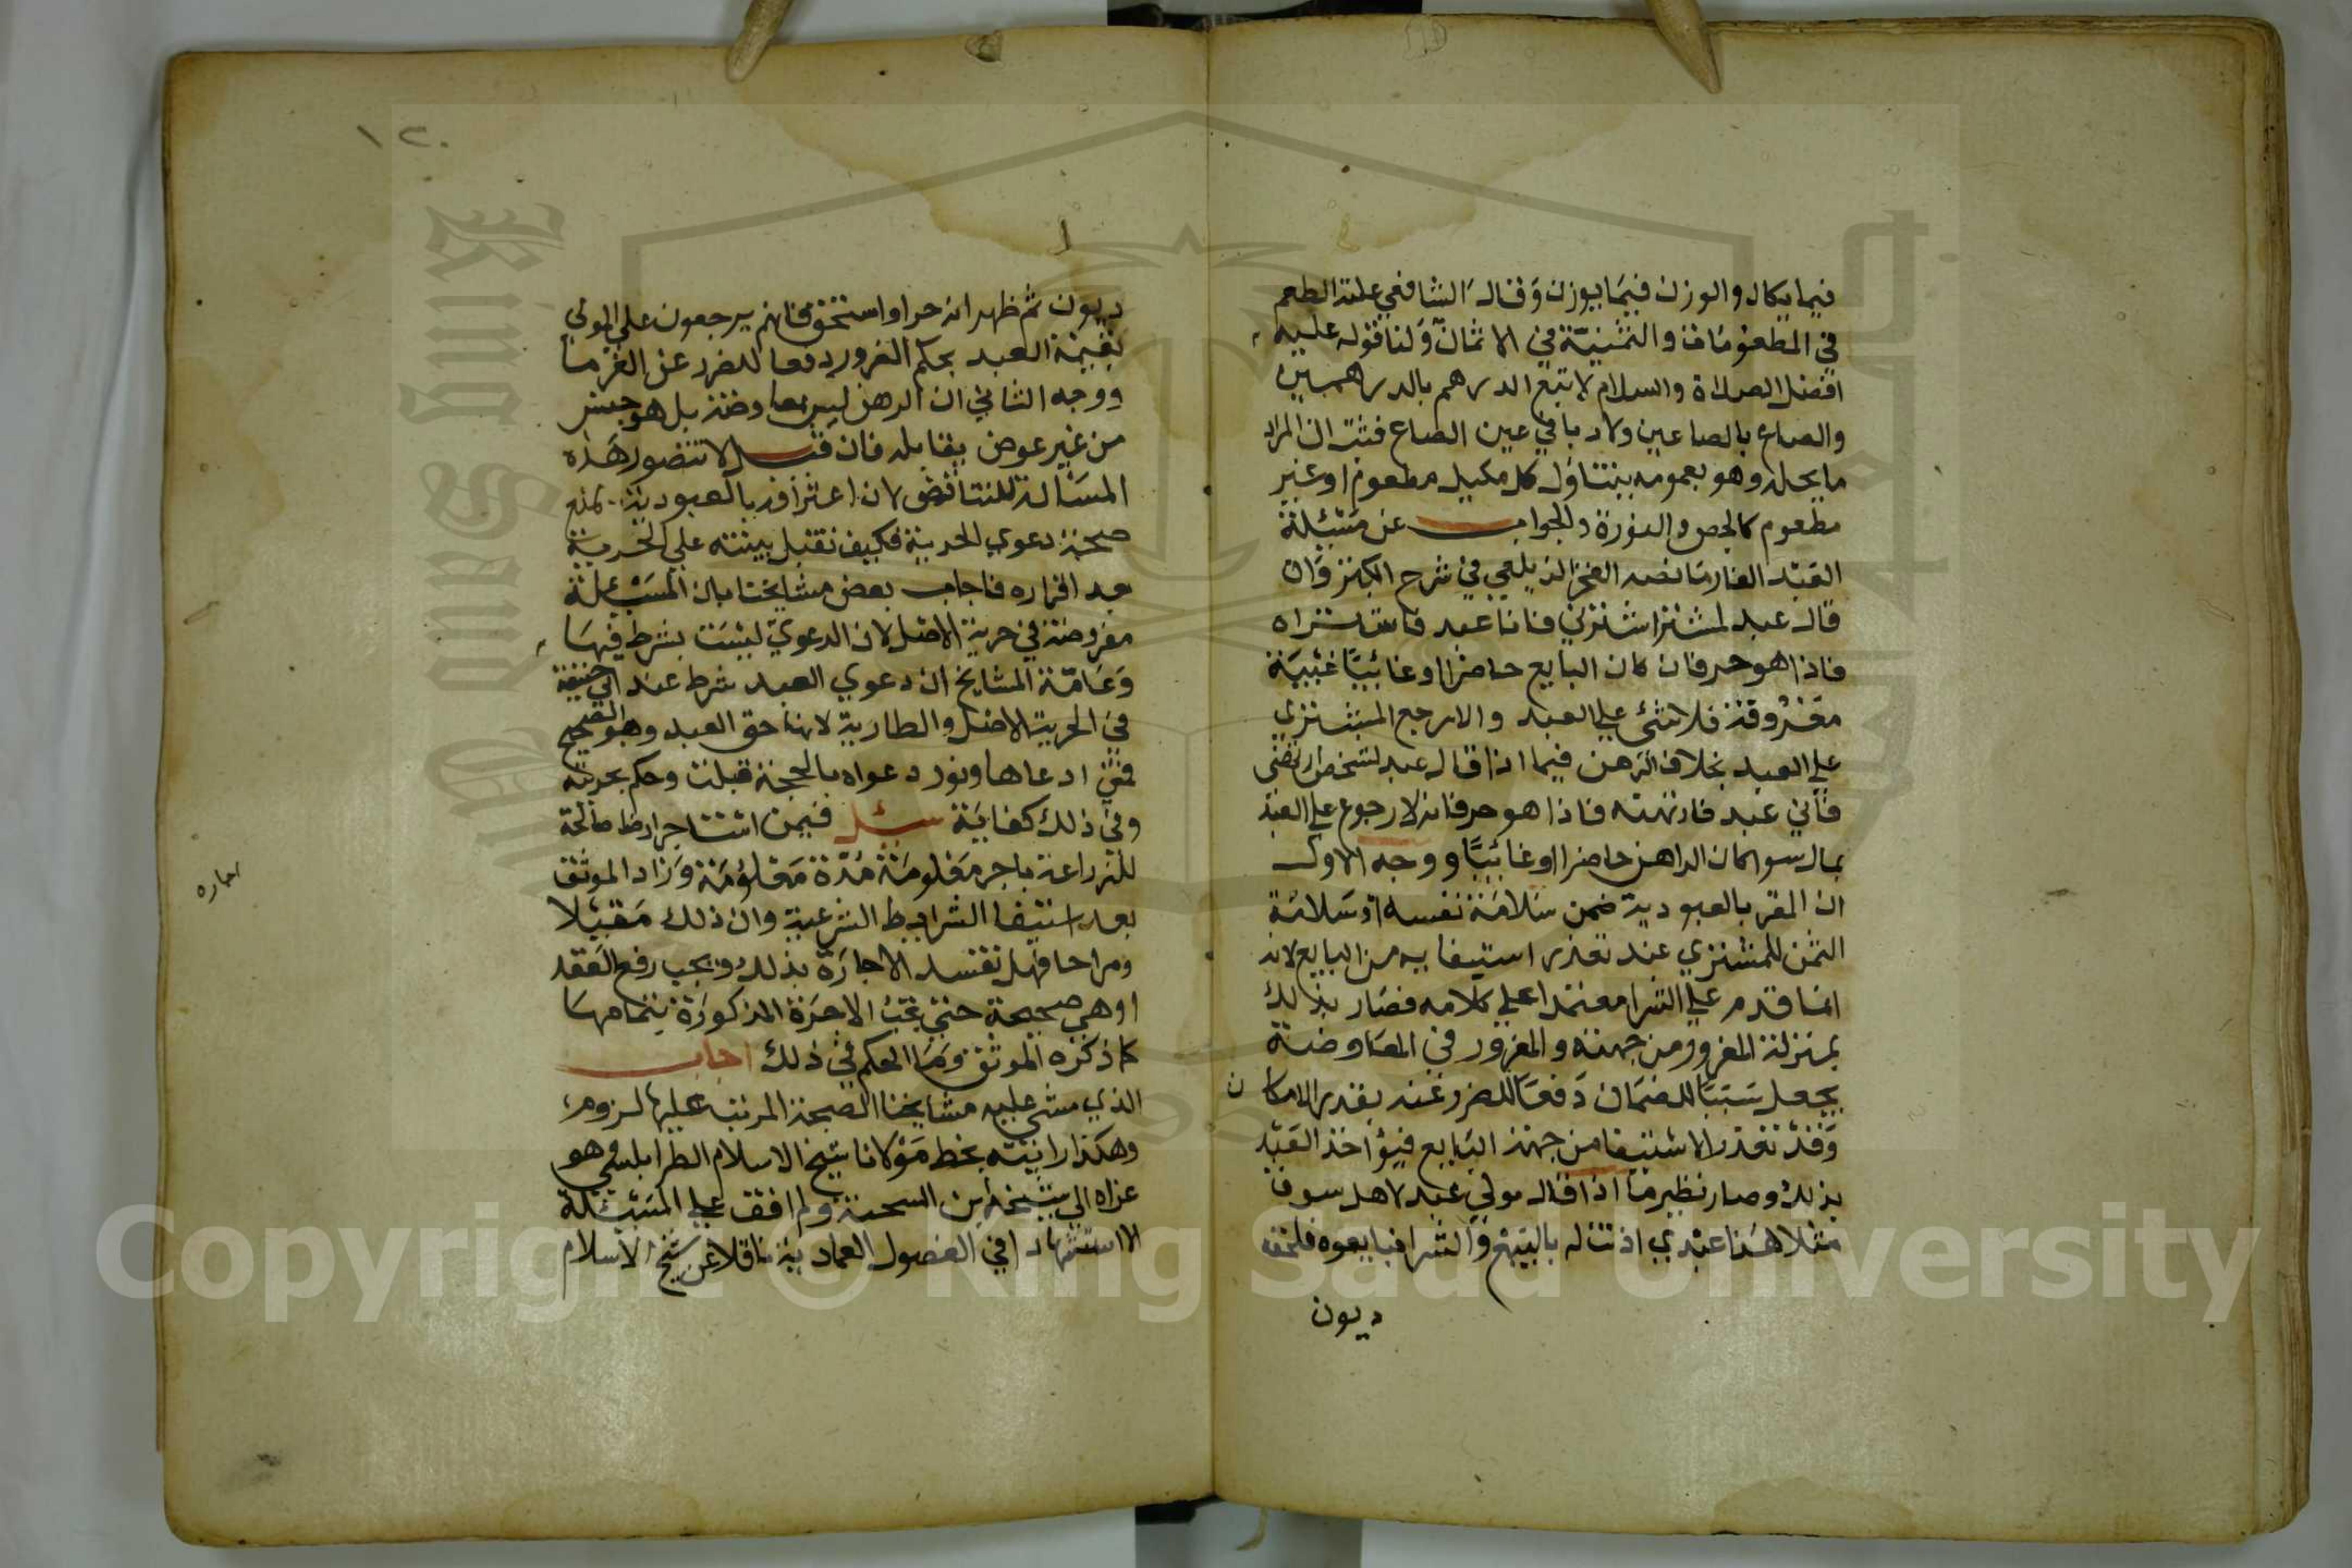 فيما يكال والوزن فيما يوزن وقال الشافعي علته الطعم
في المطعومات والثمنية في الاثمان ولنا قوله عليه
افضل الصلاة والسلام لا تبع الدرهم بالدرهمين
والصاع بالصاعين ولاد با في عين الصاع فثبت ان المراد
ما يحله وهو بعمومه يتناول كل مكيل مطعوم او غير
مطعوم كالجص والنورة والجواب عن مسئلة
العبد الغار ما نصه الفخر الزيلعي في شرح الكنز وان
قال عبد لمشتر اشترني فانا عبد فاشتراه
فاذا هو حر فان كان البايع حاضرا او غائبا غيبة
معروفة فلا شئ علي العبد والا رجع المشتري
علي العبد بخلاف الرهن فيما اذا قال عبد لشخص ارتهني
فاني عبد فارتهنه فاذا هو حر فانه لا رجوع علي العبد
بحال سوا كان الراهن حاضرا او غائبا ووجه الاول
ان المقر بالعبودية ضمن سلامة نفسه او سلامة
الثمن للمشتري عند تعذر استيفايه من البايع لانه
انما قدم علي الشرا معتمدا علي كلامه فصار بذلك
بمنزلة المغرور من جهته والمغرور في المعاوضة
يجعل سببا للضمان دفعا للضرر عنه بقدر الامكان
وقد تعذر الاستيفا من جهة البايع فيؤاخذ العبد
بذلك وصار نظير ما اذا قال مولي عبد لاهل سوق
مثلا هذا عبدي اذنت له بالبيع والشرا فبايعوه فلحقه
ديون
١٢٠
ديون ثم ظهر انه حر او استحق فانهم يرجعون علي المولي
بقيمة العبد بحكم الغرور دفعا للضرر عن الغرما
ووجه الثاني ان الرهن ليس معاوضة بل هو حبس
من غير عوض يقابله فان قيل لا تتصور هذه
المسئلة للتناقض لان اعترافه بالعبودية يمنع
صحة دعوي الحرية فكيف تقبل بينته علي الحرية
بعد اقراره فاجاب بعض مشايخنا بان المسئلة
مفروضة في حرية الاصل لان الدعوي ليست بشرط فيها
وعامة المشايخ ان دعوي العبد شرط عند ابي حنيفة
في الحرية الاصل والطارية لانها حق العبد وهو الصحيح
فمتي ادعاها ونور دعواه بالحجة قبلت وحكم بحريته
وفي ذلك كفاية سئل فيمن استاجر ارضا صالحة
للزراعة باجر معلومة مدة معلومة وزاد الموثق
بعد استيفا الشرايط الشرعية وان ذلك مقيلا
ومراحا فهل تفسد الاجارة بذلك ويجب رفع العقد
او هي صحيحة حتي تجب الاجرة المذكورة بتمامها
كما ذكره الموثق وما الحكم في ذلك اجاب
الذي مشي عليه مشايخنا الصحة المرتب عليها لزوم
وهكذا رايته بخط مولانا شيخ الاسلام الطرابلسي هو
عزاه الي شيخه ابن الشحنة ولم اقف علي المسئلة
الا استشهادا في الفصول العمادية ناقلا عن شيخ الاسلام
اجاره